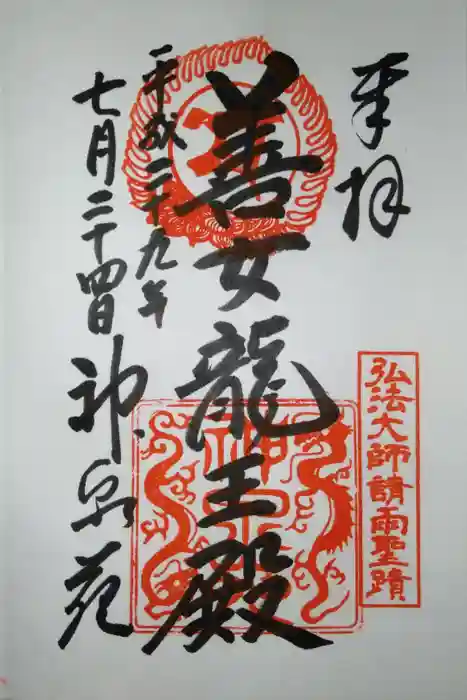 奉拝
弘法大師請雨聖蹟
善女龍王殿
平成二十九年
七月二十四日
神泉苑